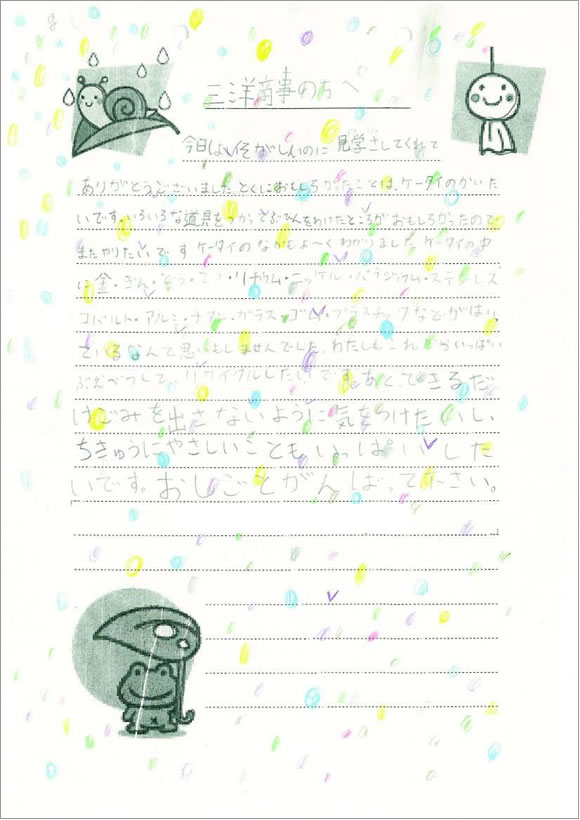 三洋商事の方へ
今日はいそがしいのに見学させてくれて
ありがとうございました。とくにおもしろかったことは、ケータイのかいた
いです。いろいろな道具をつかってぶひんをわけたところがおもしろかったので
またやりたいです。ケータイのなかもよ〜くわかりました。ケータイの中
に金・ぎん・どう・てつ・リチウム・ニッケル・パラジウム・ステンレス
コバルト・アルミ・ナマリ・ガラス・ゴム・プラスチックなどがはいっ
ているなんて思いもしませんでした。わたしもこれからいっぱい
ぶんべつして、リサイクルしたいです。あと、できるだ
けごみを出さないように気をつけたいし、
ちきゅうにやさしいこともいっぱいした
いです。おしごとがんばって下さい。